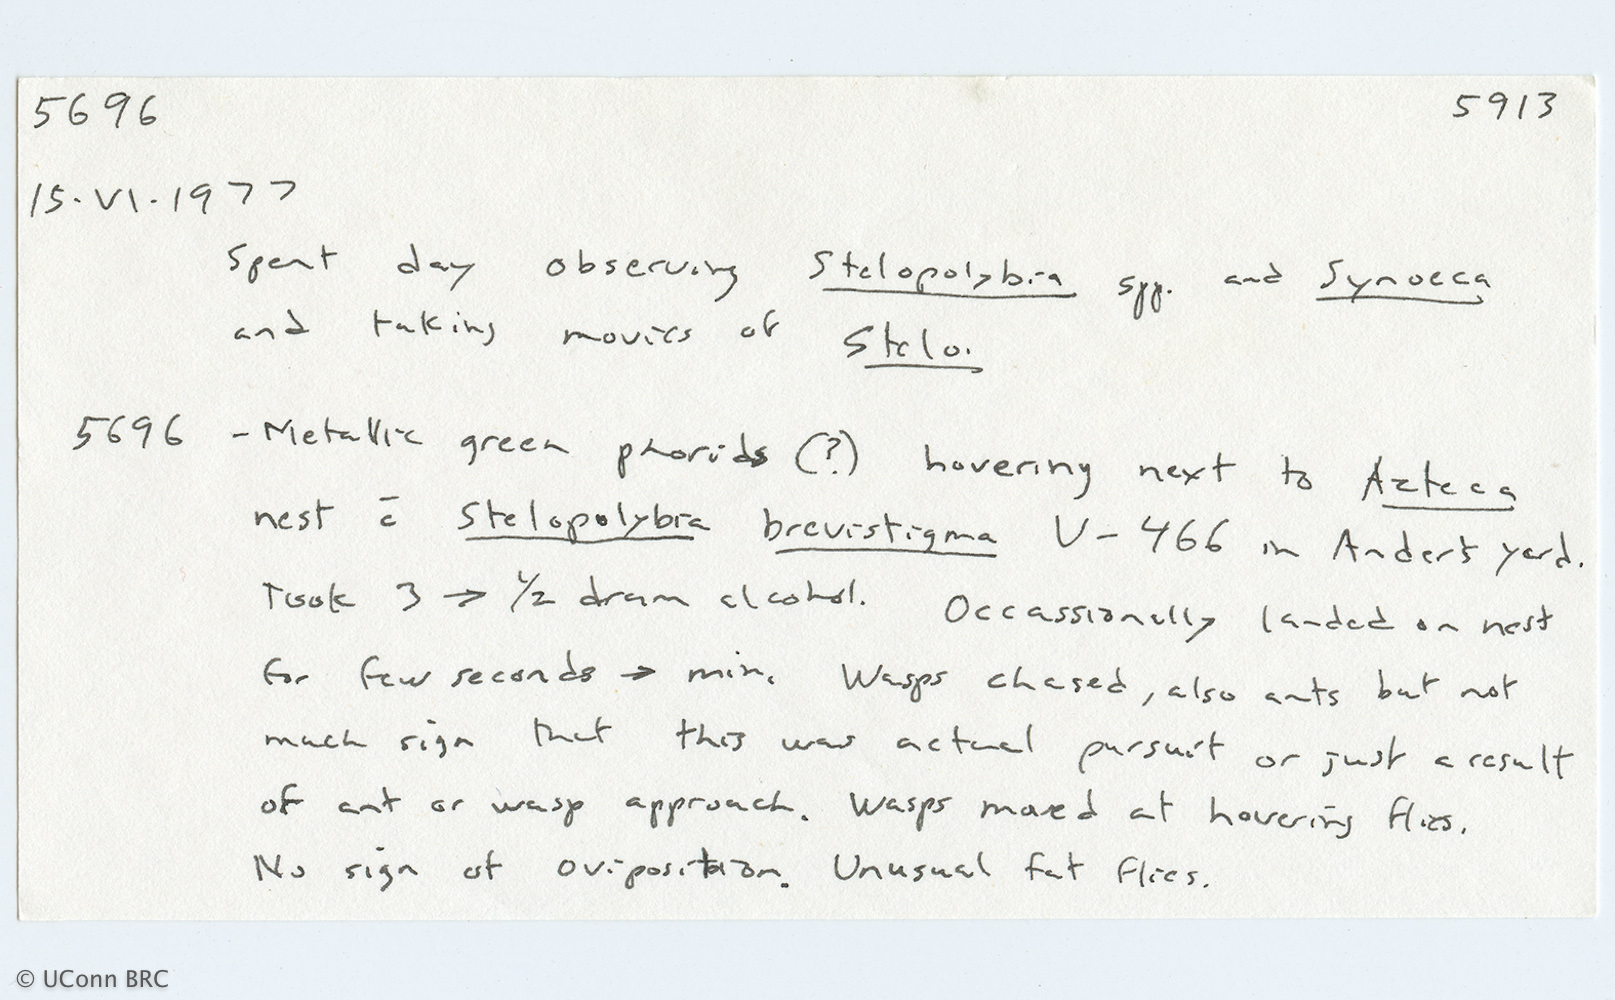 5696 5913
15.VI.1977
Spent day observing Stelopolybia spp. and Synoeca
and taking movies of Stelo.
5696 - Metallic green phorids (?) hovering next to Azteca
nest c̄ Stelopolybia brevistigma V-466 in Ander's yard.
Took 3 → 1/2 dram alcohol. Occassionally landed on nest
for few seconds → min. Wasps chased, also ants but not
much sign that this was actual pursuit or just a result
of ant or wasp approach. Wasps moved at hovering flies.
No sign of oviposition. Unusual fat flies.
© UConn BRC